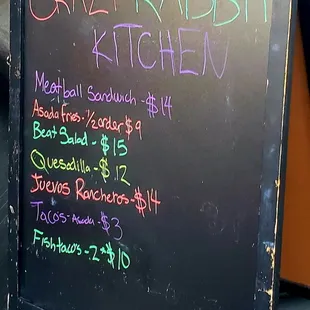 CRAZY RABBIT
KITCHEN
Meatball Sandwich - $14
Asada Fries - 1/2 order $9
Beat Salad - $15
Quesadilla - $12
Juevos Rancheros - $14
Tacos - Asada - $3
Fish tacos - 2 - $10